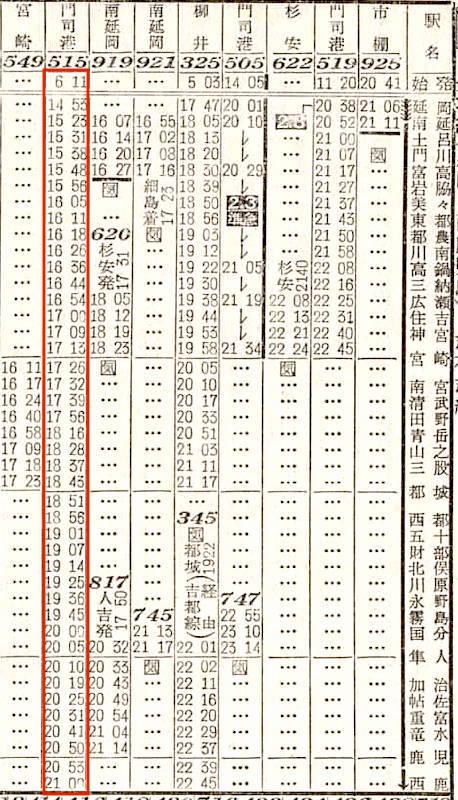 宮崎 門司港 南延岡 南延岡 柳井 門司港 杉安 門司港 市棚 駅名
549 515 919 921 325 505 622 519 925
… 6 11 … … 5 03 14 05 … … 20 41 始発
… 14 53 … … 17 47 20 01 20 38 21 06 延岡
… 15 23 16 07 16 55 18 05 20 10 20 52 21 11 南延岡
… 15 31 16 14 17 02 18 13 ↓ … 21 00 土々呂
… 15 38 16 20 17 08 18 20 ↓ … 21 07 図 門川
… 15 48 16 27 17 16 18 30 20 29 … 21 17 富高
… 15 56 図 細島着17 23 18 39 ↓ … 21 27 岩脇
… 16 05 … 18 50 … 21 37 美々
… 16 11 … 18 56 準急 … 21 43 東都農
… 16 18 620 図 19 03 ↓ … 21 50 都農
… 16 26 杉安発17 31 … 19 12 ↓ 21 58 川南
… 16 36 … 19 22 21 05 杉安21 40 22 08 高鍋
… 16 44 … 19 30 ↓ 22 16 三納
… 16 54 18 05 … 19 38 21 19 22 08 22 25 広瀬
… 17 00 18 12 … 19 44 ↓ 22 13 22 31 住吉
… 17 09 18 19 … 19 53 ↓ 22 21 22 40 神宮
… 17 13 18 23 … 19 58 21 34 22 24 22 45 宮崎
16 11 17 26 図 … 20 05 … 図 …
16 17 17 32 … … 20 10 … … … 南宮
16 24 17 39 … … 20 17 … … … 清武
16 40 17 56 … … 20 33 … … … 田野
16 58 18 16 … … 20 51 … … … 青岳
17 09 18 28 … … 21 03 … … … 山之
17 18 18 37 … … 21 11 … … … 三股
17 23 18 43 … … 21 17 … … … 都城
… 18 51 … … … … … …
… 18 56 … … 345 … … … 西都
… 19 01 … … 図 … … … 五十
… 19 07 … … 都城19 22 … … … 財部
… 19 14 … … (吉都線経由) … … … 北俣
… 19 25 817 … … … … 川原
… 19 36 人吉発17 50 … 747 … … 永野
… 19 45 745 22 55 … … 霧島
… 20 00 21 13 23 10 … … 国分
… 20 05 20 32 21 17 22 01 23 14 … … 隼人
… 20 10 20 33 図 22 02 図 … …
… 20 19 20 43 … 22 11 … … … 加治
… 20 25 20 49 … 22 16 … … … 帖佐
… 20 31 20 54 … 22 20 … … … 重富
… 20 41 21 04 … 22 29 … … … 竜水
… 20 50 21 14 … 22 37 … … … 鹿児
… 20 53 … … 22 39 … … …
… 21 00 … … 22 45 … … … 西鹿